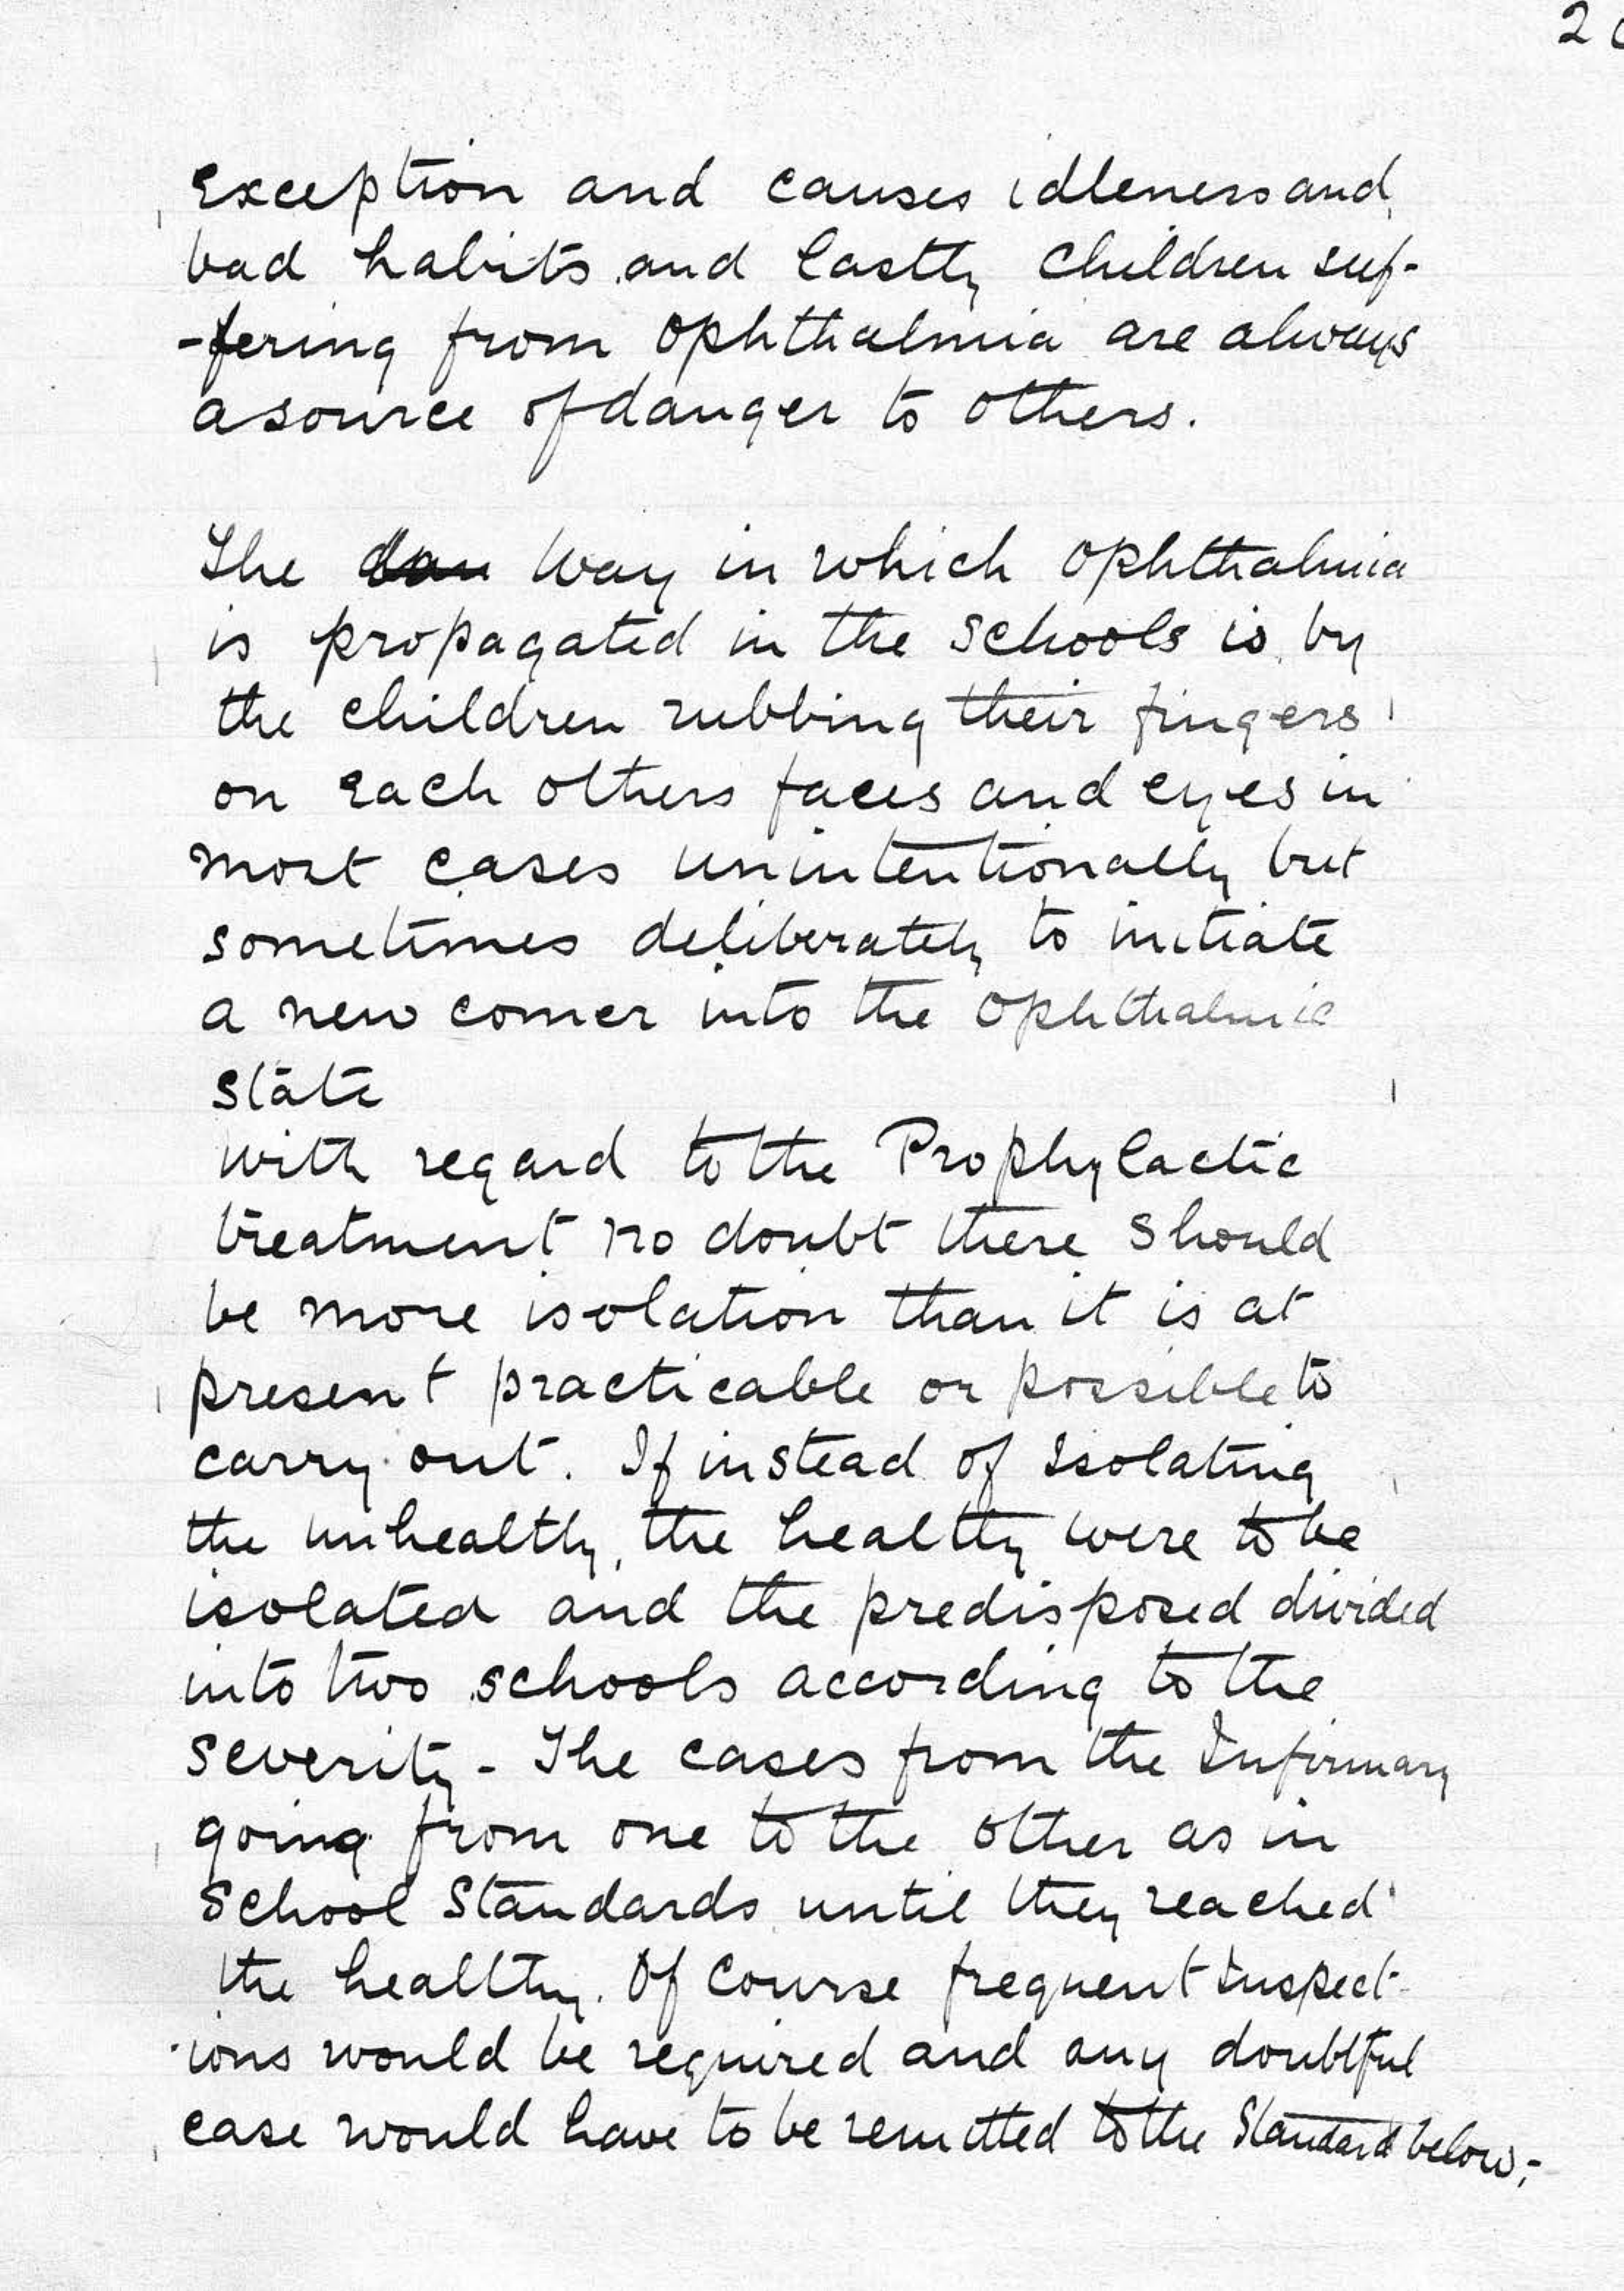 exception and causes idleness and
bad habits and lastly children suf-
-fering from Ophthalmia are always
a source of danger to others.
The way in which Ophthalmia
is propagated in the schools is by
the children rubbing their fingers
on each others faces and eyes in
most cases unintentionally but
sometimes deliberately to initiate
a new comer into the Ophthalmic
state
with regard to the Prophylactic
treatment no doubt there should
be more isolation than it is at
present practicable or possible to
carry out. If instead of Isolating
the unhealthy, the healthy were to be
isolated and the predisposed divided
into two schools according to the
severity - The cases from the Infirmary
going from one to the other as in
School Standards until they reached
the healthy. Of course frequent Inspect-
-ions would be required and any doubtful
case would have to be remitted to the Standard below,-